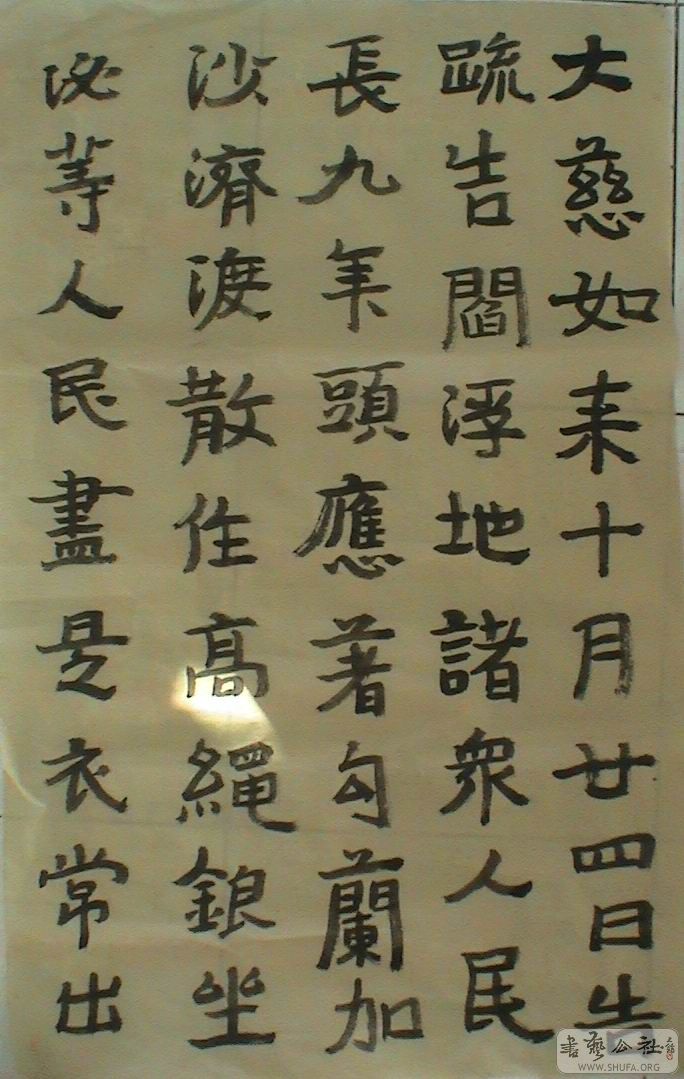 大慈如来十月廿四日告
疏告閻浮地諸衆人民
長九年頭應著勾蘭加
沙濟渡散住高繩銀坐
汝等人民盡是衣常出
書藝公社
WWW.SHUFA.ORG